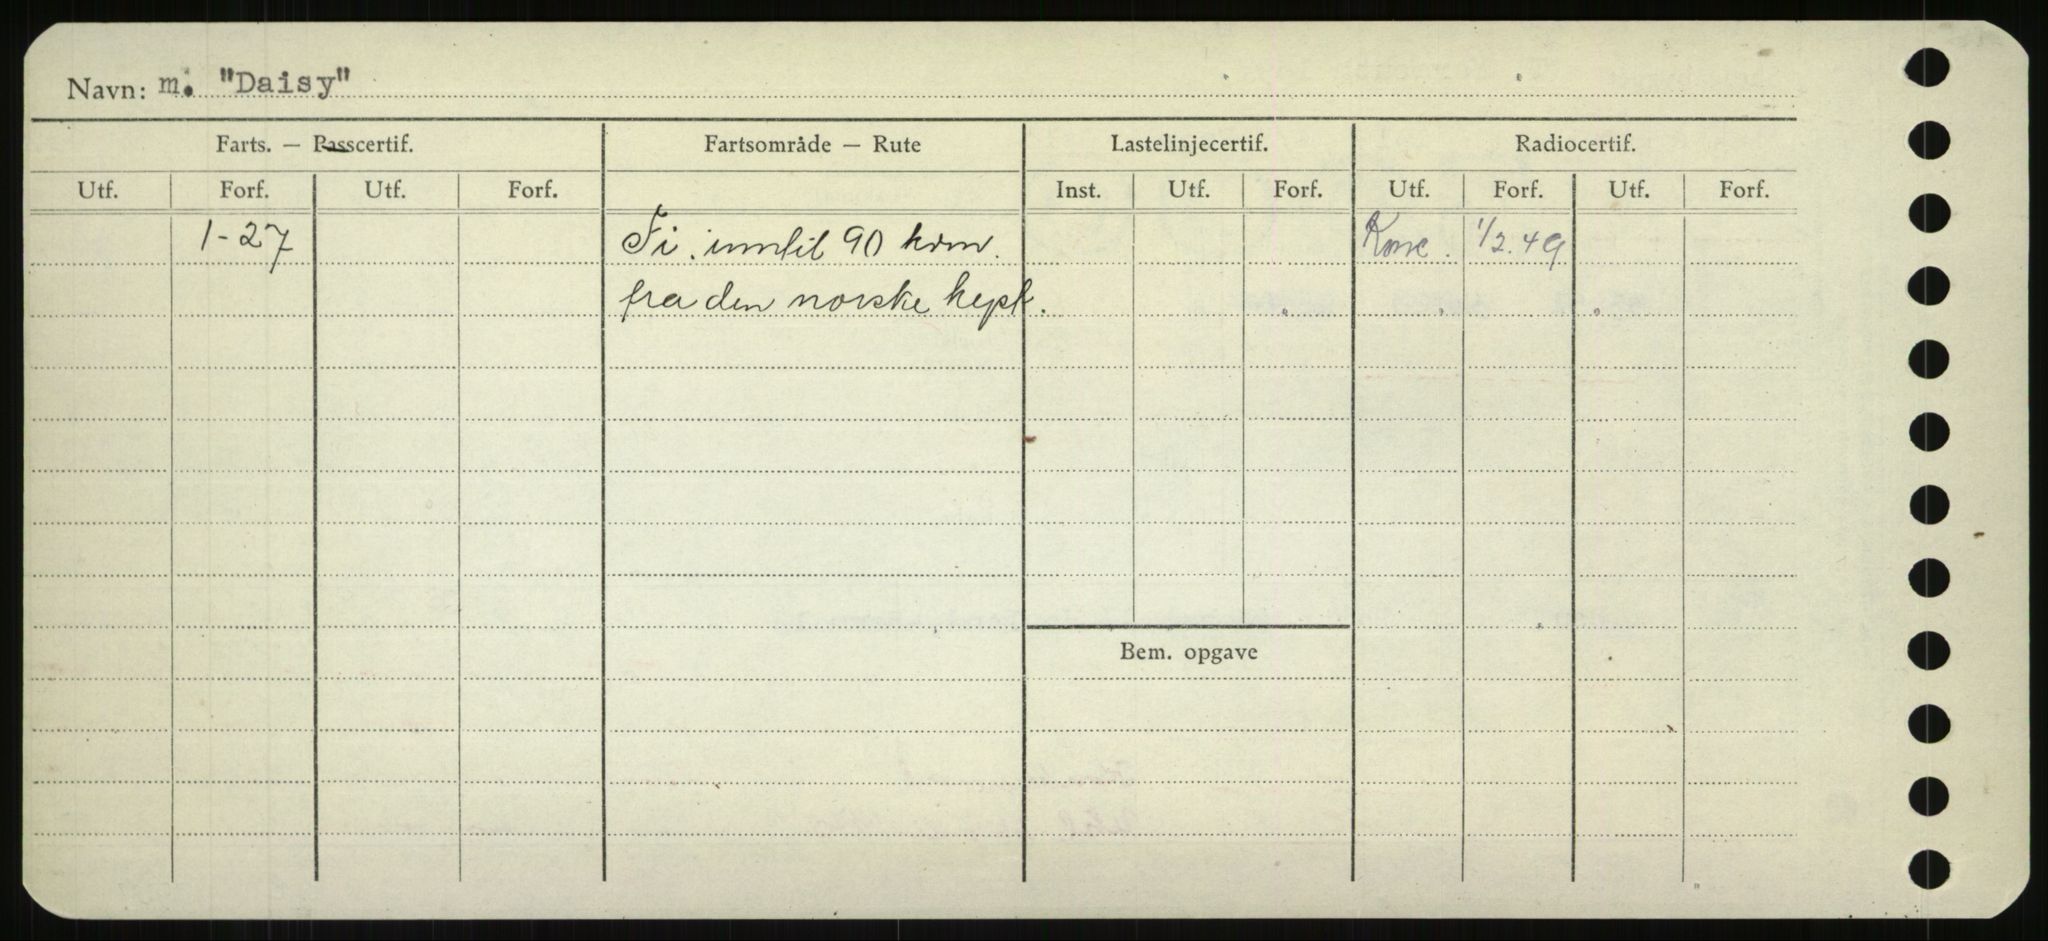 Navn: m. "Daisy"
Farts. — Passcertif. Fartsområde — Rute Lastelinjecertif. Radiocertif.
Utf. Forf. Utf. Forf. Inst. Utf. Forf. Utf. Forf. Utf. Forf.
1-27 Fi. inntil 90 kvm. Konc. 1/2.49
fra den norske kyst.
Bem. opgave